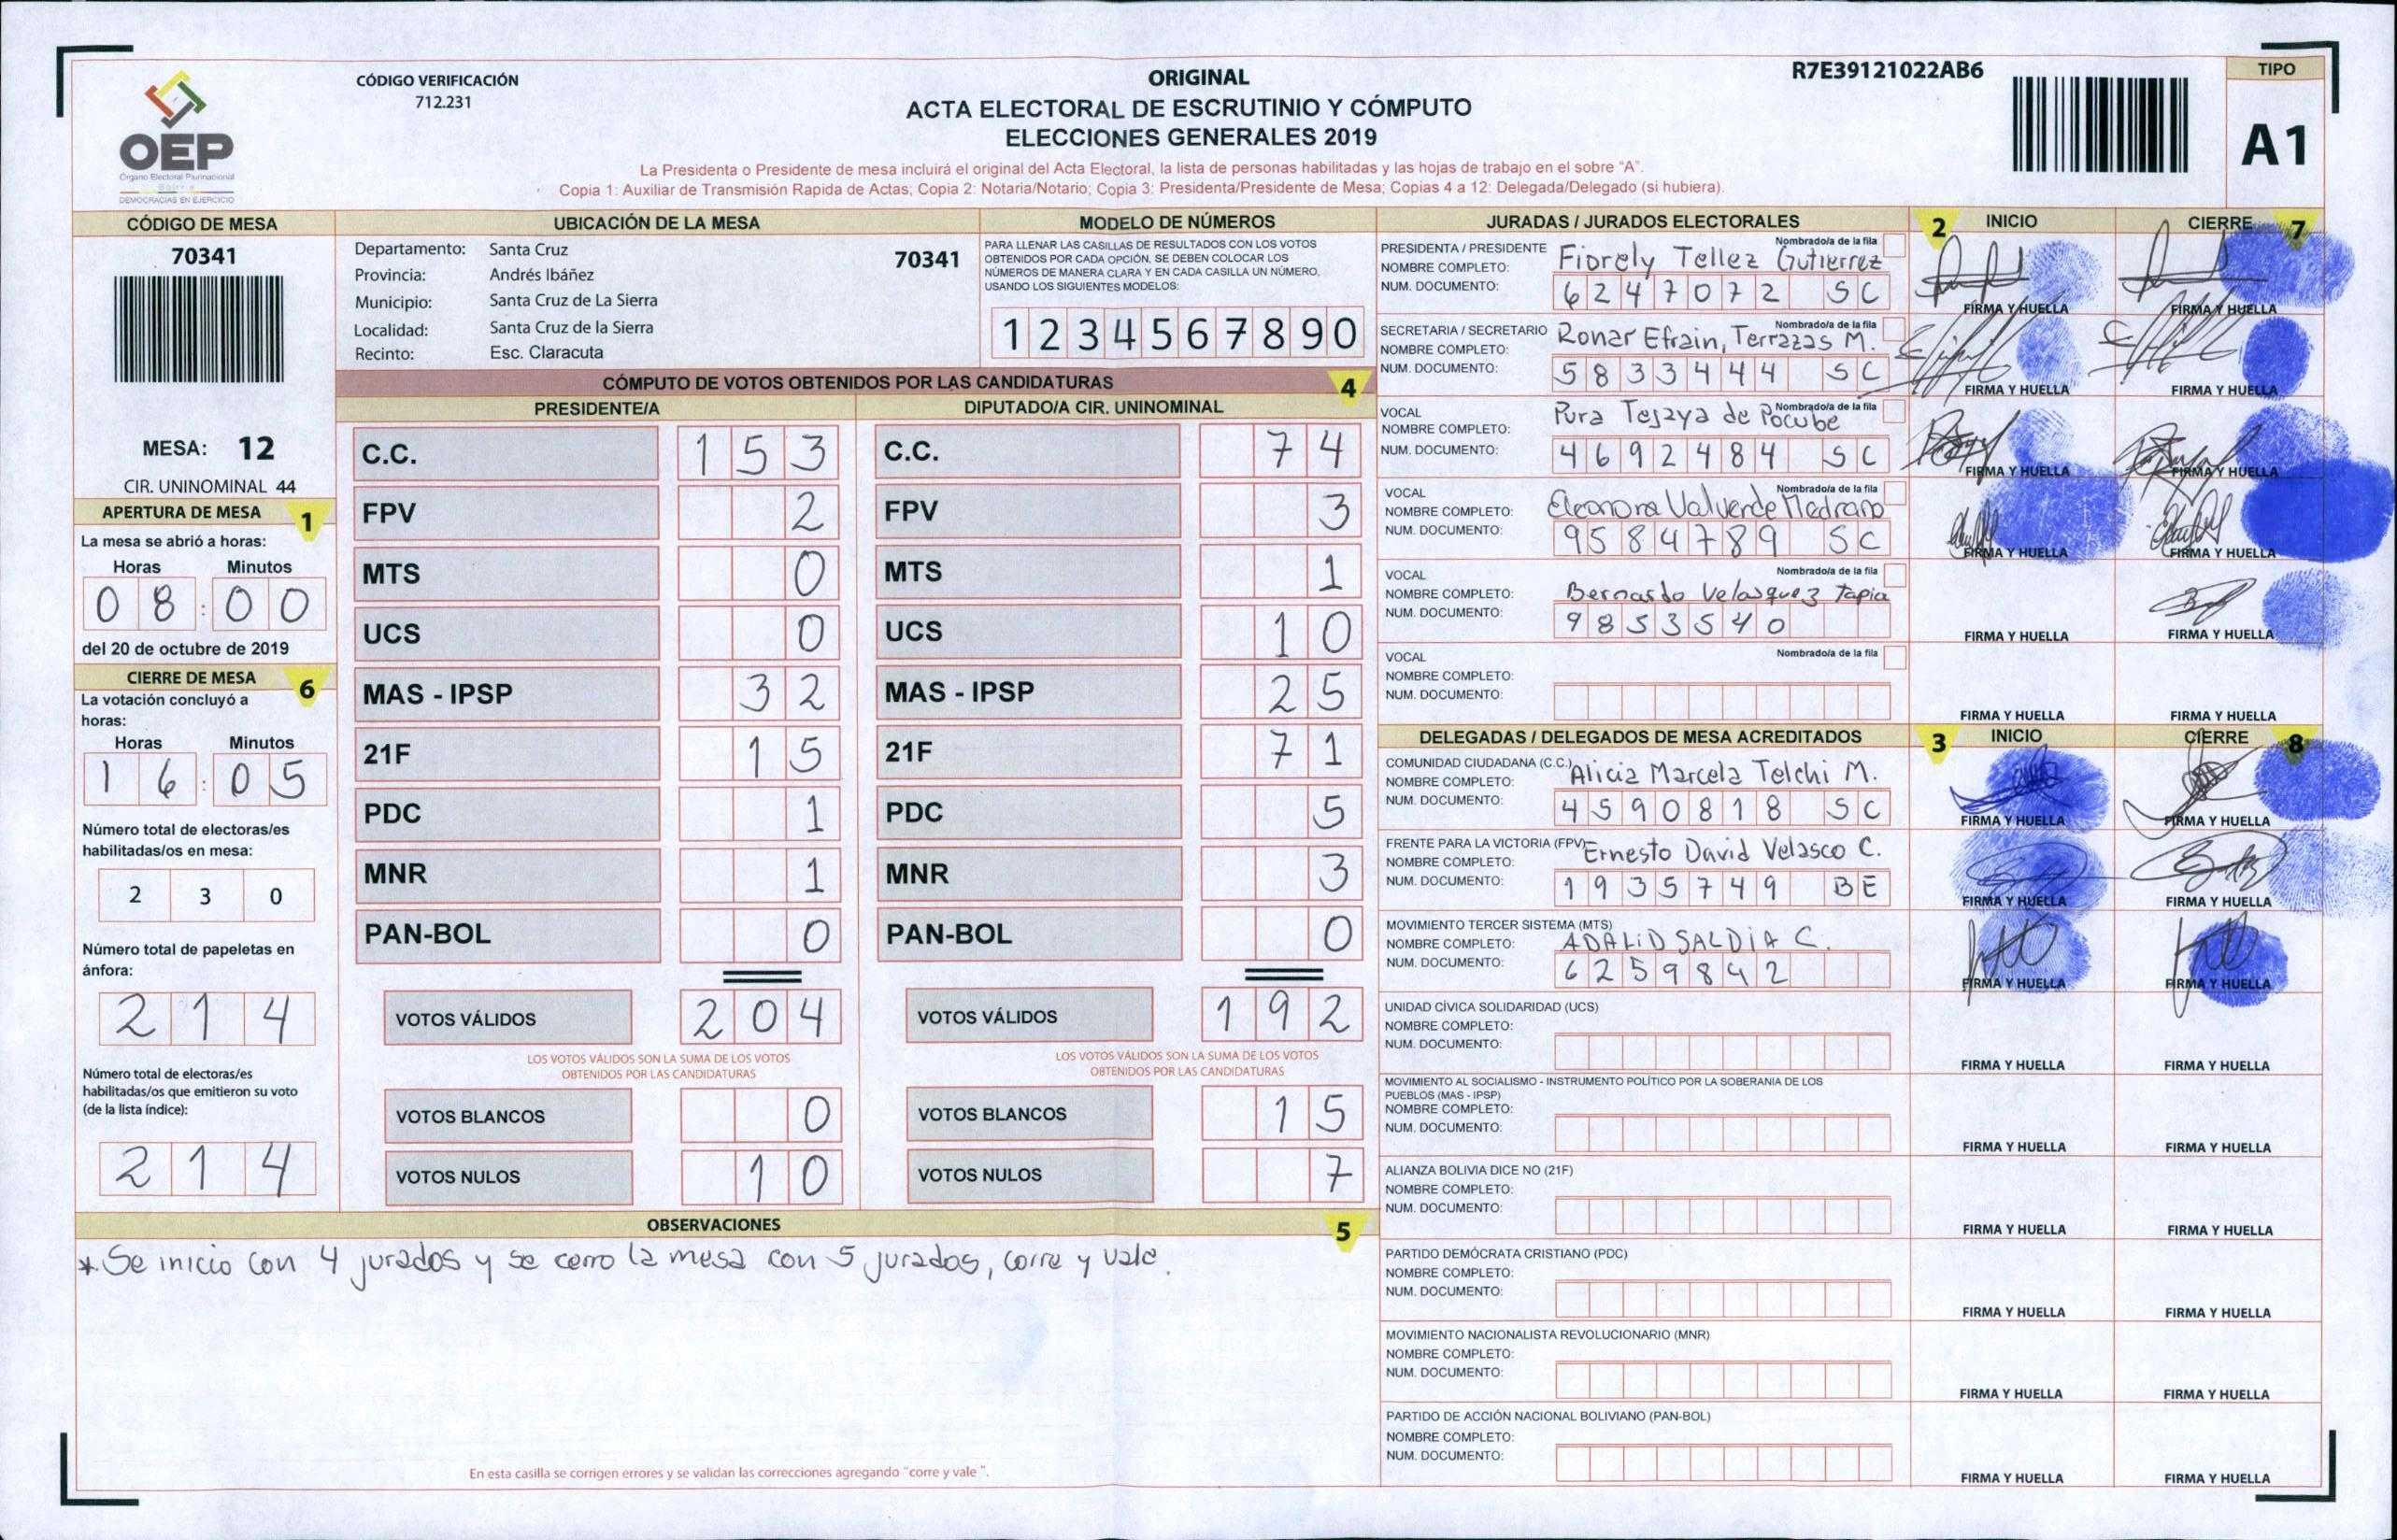 OEP
Órgano Electoral Plurinacional
Bolivia
DEMOCRACIAS EN EJERCICIO
CÓDIGO VERIFICACIÓN
712.231
ORIGINAL
ACTA ELECTORAL DE ESCRUTINIO Y CÓMPUTO
ELECCIONES GENERALES 2019
La Presidenta o Presidente de mesa incluirá el original del Acta Electoral, la lista de personas habilitadas y las hojas de trabajo en el sobre "A".
Copia 1: Auxiliar de Transmisión Rapida de Actas; Copia 2: Notaria/Notario; Copia 3: Presidenta/Presidente de Mesa; Copias 4 a 12: Delegada/Delegado (si hubiera).
R7E39121022AB6
TIPO
A1
CÓDIGO DE MESA
70341
MESA: 12
CIR. UNINOMINAL 44
APERTURA DE MESA 1
La mesa se abrió a horas:
Horas Minutos
08:00
del 20 de octubre de 2019
CIERRE DE MESA 6
La votación concluyó a
horas:
Horas Minutos
16:05
Número total de electoras/es
habilitadas/os en mesa:
2 3 0
Número total de papeletas en
ánfora:
2 1 4
Número total de electoras/es
habilitadas/os que emitieron su voto
(de la lista índice):
2 1 4
UBICACIÓN DE LA MESA
Departamento: Santa Cruz 70341
Provincia: Andrés Ibáñez
Municipio: Santa Cruz de La Sierra
Localidad: Santa Cruz de la Sierra
Recinto: Esc. Claracuta
MODELO DE NÚMEROS
PARA LLENAR LAS CASILLAS DE RESULTADOS CON LOS VOTOS
OBTENIDOS POR CADA OPCIÓN, SE DEBEN COLOCAR LOS
NÚMEROS DE MANERA CLARA Y EN CADA CASILLA UN NÚMERO,
USANDO LOS SIGUIENTES MODELOS:
1 2 3 4 5 6 7 8 9 0
CÓMPUTO DE VOTOS OBTENIDOS POR LAS CANDIDATURAS 4
PRESIDENTE/A DIPUTADO/A CIR. UNINOMINAL
C.C. 153 C.C. 74
FPV 2 FPV 3
MTS 0 MTS 1
UCS 0 UCS 10
MAS - IPSP 32 MAS - IPSP 25
21F 15 21F 71
PDC 1 PDC 5
MNR 1 MNR 3
PAN-BOL 0 PAN-BOL 0
VOTOS VÁLIDOS 204 VOTOS VÁLIDOS 192
LOS VOTOS VÁLIDOS SON LA SUMA DE LOS VOTOS LOS VOTOS VÁLIDOS SON LA SUMA DE LOS VOTOS
OBTENIDOS POR LAS CANDIDATURAS OBTENIDOS POR LAS CANDIDATURAS
VOTOS BLANCOS 0 VOTOS BLANCOS 15
VOTOS NULOS 10 VOTOS NULOS 7
OBSERVACIONES 5
* Se inicio con 4 jurados y se cerro la mesa con 5 jurados, corre y vale.
En esta casilla se corrigen errores y se validan las correcciones agregando "corre y vale ".
JURADAS / JURADOS ELECTORALES 2 INICIO CIERRE 7
PRESIDENTA / PRESIDENTE Nombrado/a de la fila
NOMBRE COMPLETO: Fiorely Tellez Gutierrez
NUM. DOCUMENTO: 6247072 SC
FIRMA Y HUELLA FIRMA Y HUELLA
SECRETARIA / SECRETARIO Nombrado/a de la fila
NOMBRE COMPLETO: Ronar Efrain, Terrazas M.
NUM. DOCUMENTO: 5833444 SC
FIRMA Y HUELLA FIRMA Y HUELLA
VOCAL Nombrado/a de la fila
NOMBRE COMPLETO: Pura Tejaya de Pocube
NUM. DOCUMENTO: 4692484 SC
FIRMA Y HUELLA FIRMA Y HUELLA
VOCAL Nombrado/a de la fila
NOMBRE COMPLETO: Eleonora Valverde Medrano
NUM. DOCUMENTO: 9584789 SC
FIRMA Y HUELLA FIRMA Y HUELLA
VOCAL Nombrado/a de la fila
NOMBRE COMPLETO: Bernardo Velasquez Tapia
NUM. DOCUMENTO: 9853540
FIRMA Y HUELLA FIRMA Y HUELLA
VOCAL Nombrado/a de la fila
NOMBRE COMPLETO:
NUM. DOCUMENTO:
FIRMA Y HUELLA FIRMA Y HUELLA
DELEGADAS / DELEGADOS DE MESA ACREDITADOS 3 INICIO CIERRE 8
COMUNIDAD CIUDADANA (C.C.)
NOMBRE COMPLETO: Alicia Marcela Telchi M.
NUM. DOCUMENTO: 4590818 SC
FIRMA Y HUELLA FIRMA Y HUELLA
FRENTE PARA LA VICTORIA (FPV)
NOMBRE COMPLETO: Ernesto David Velasco C.
NUM. DOCUMENTO: 1935749 BE
FIRMA Y HUELLA FIRMA Y HUELLA
MOVIMIENTO TERCER SISTEMA (MTS)
NOMBRE COMPLETO: ADALiD SALDiA C.
NUM. DOCUMENTO: 6259842
FIRMA Y HUELLA FIRMA Y HUELLA
UNIDAD CÍVICA SOLIDARIDAD (UCS)
NOMBRE COMPLETO:
NUM. DOCUMENTO:
FIRMA Y HUELLA FIRMA Y HUELLA
MOVIMIENTO AL SOCIALISMO - INSTRUMENTO POLÍTICO POR LA SOBERANIA DE LOS
PUEBLOS (MAS - IPSP)
NOMBRE COMPLETO:
NUM. DOCUMENTO:
FIRMA Y HUELLA FIRMA Y HUELLA
ALIANZA BOLIVIA DICE NO (21F)
NOMBRE COMPLETO:
NUM. DOCUMENTO:
FIRMA Y HUELLA FIRMA Y HUELLA
PARTIDO DEMÓCRATA CRISTIANO (PDC)
NOMBRE COMPLETO:
NUM. DOCUMENTO:
FIRMA Y HUELLA FIRMA Y HUELLA
MOVIMIENTO NACIONALISTA REVOLUCIONARIO (MNR)
NOMBRE COMPLETO:
NUM. DOCUMENTO:
FIRMA Y HUELLA FIRMA Y HUELLA
PARTIDO DE ACCIÓN NACIONAL BOLIVIANO (PAN-BOL)
NOMBRE COMPLETO:
NUM. DOCUMENTO:
FIRMA Y HUELLA FIRMA Y HUELLA